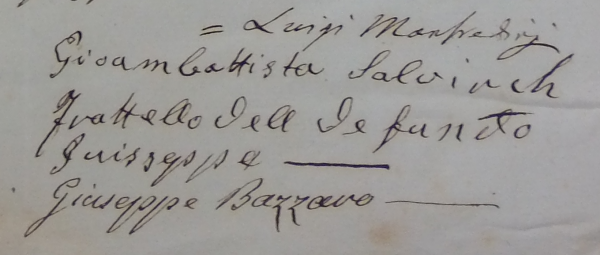 = Luigi Manfredinj
Gioambattista Salvinch
Frattello dell defunto
Juisseppe —
Giuseppe Bazzaro —